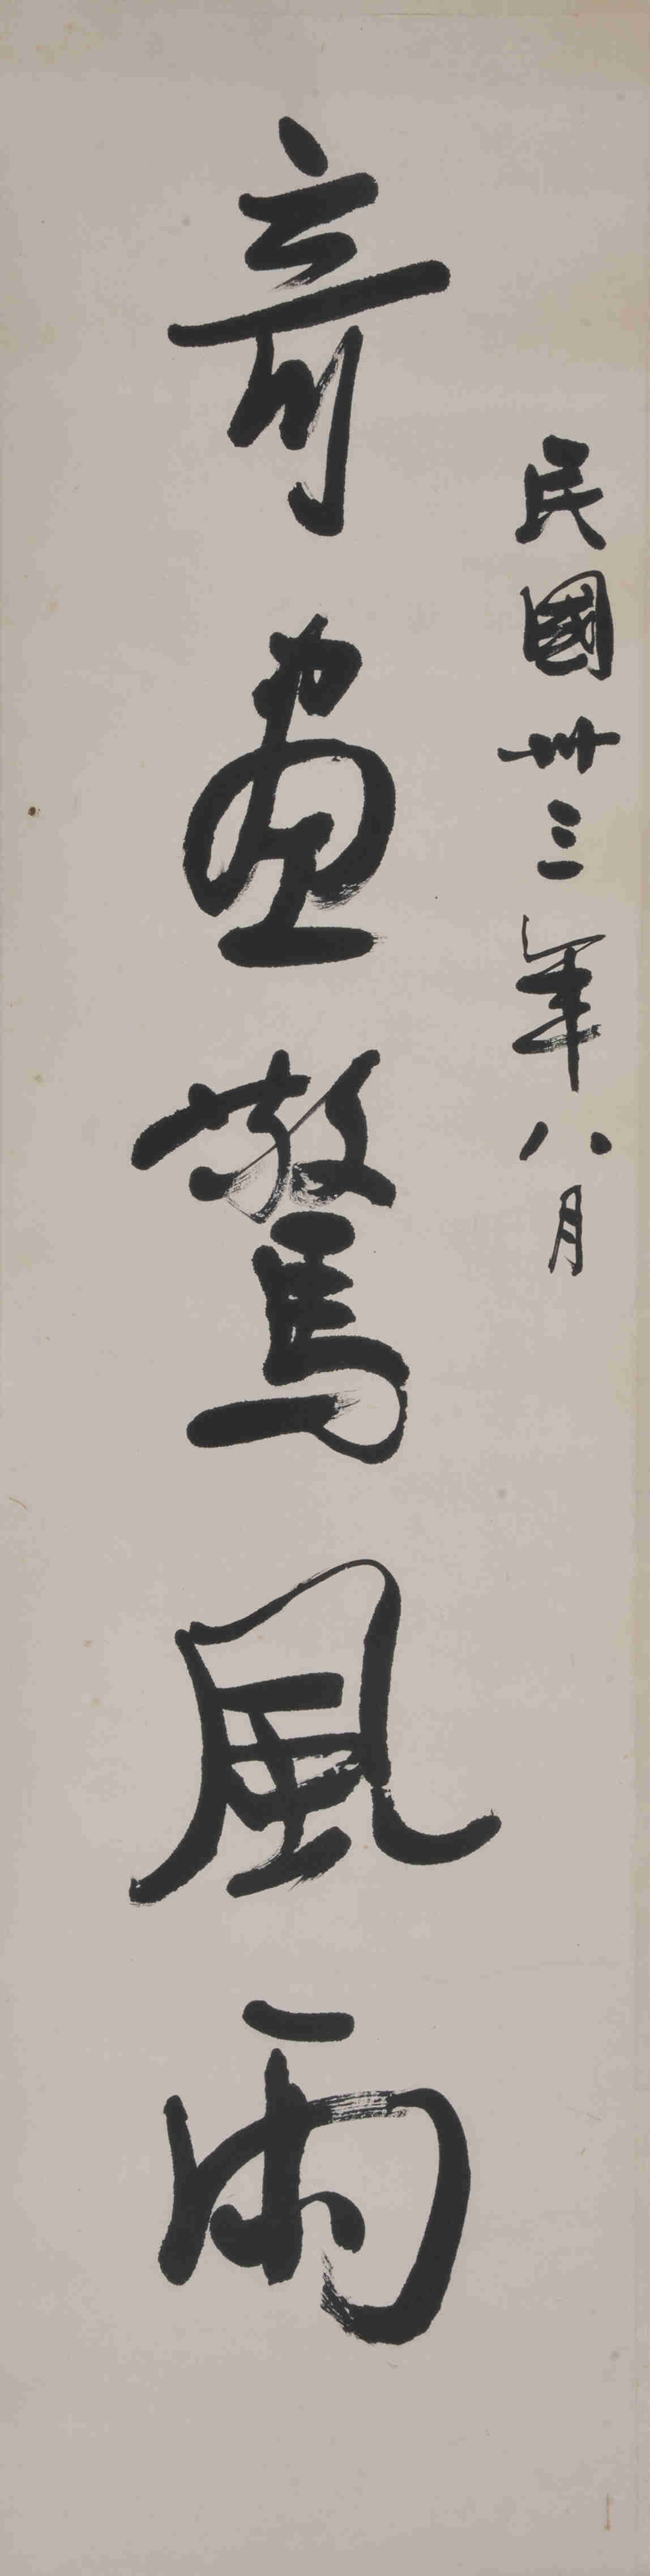 民國卅三年八月
竒畫驚風雨